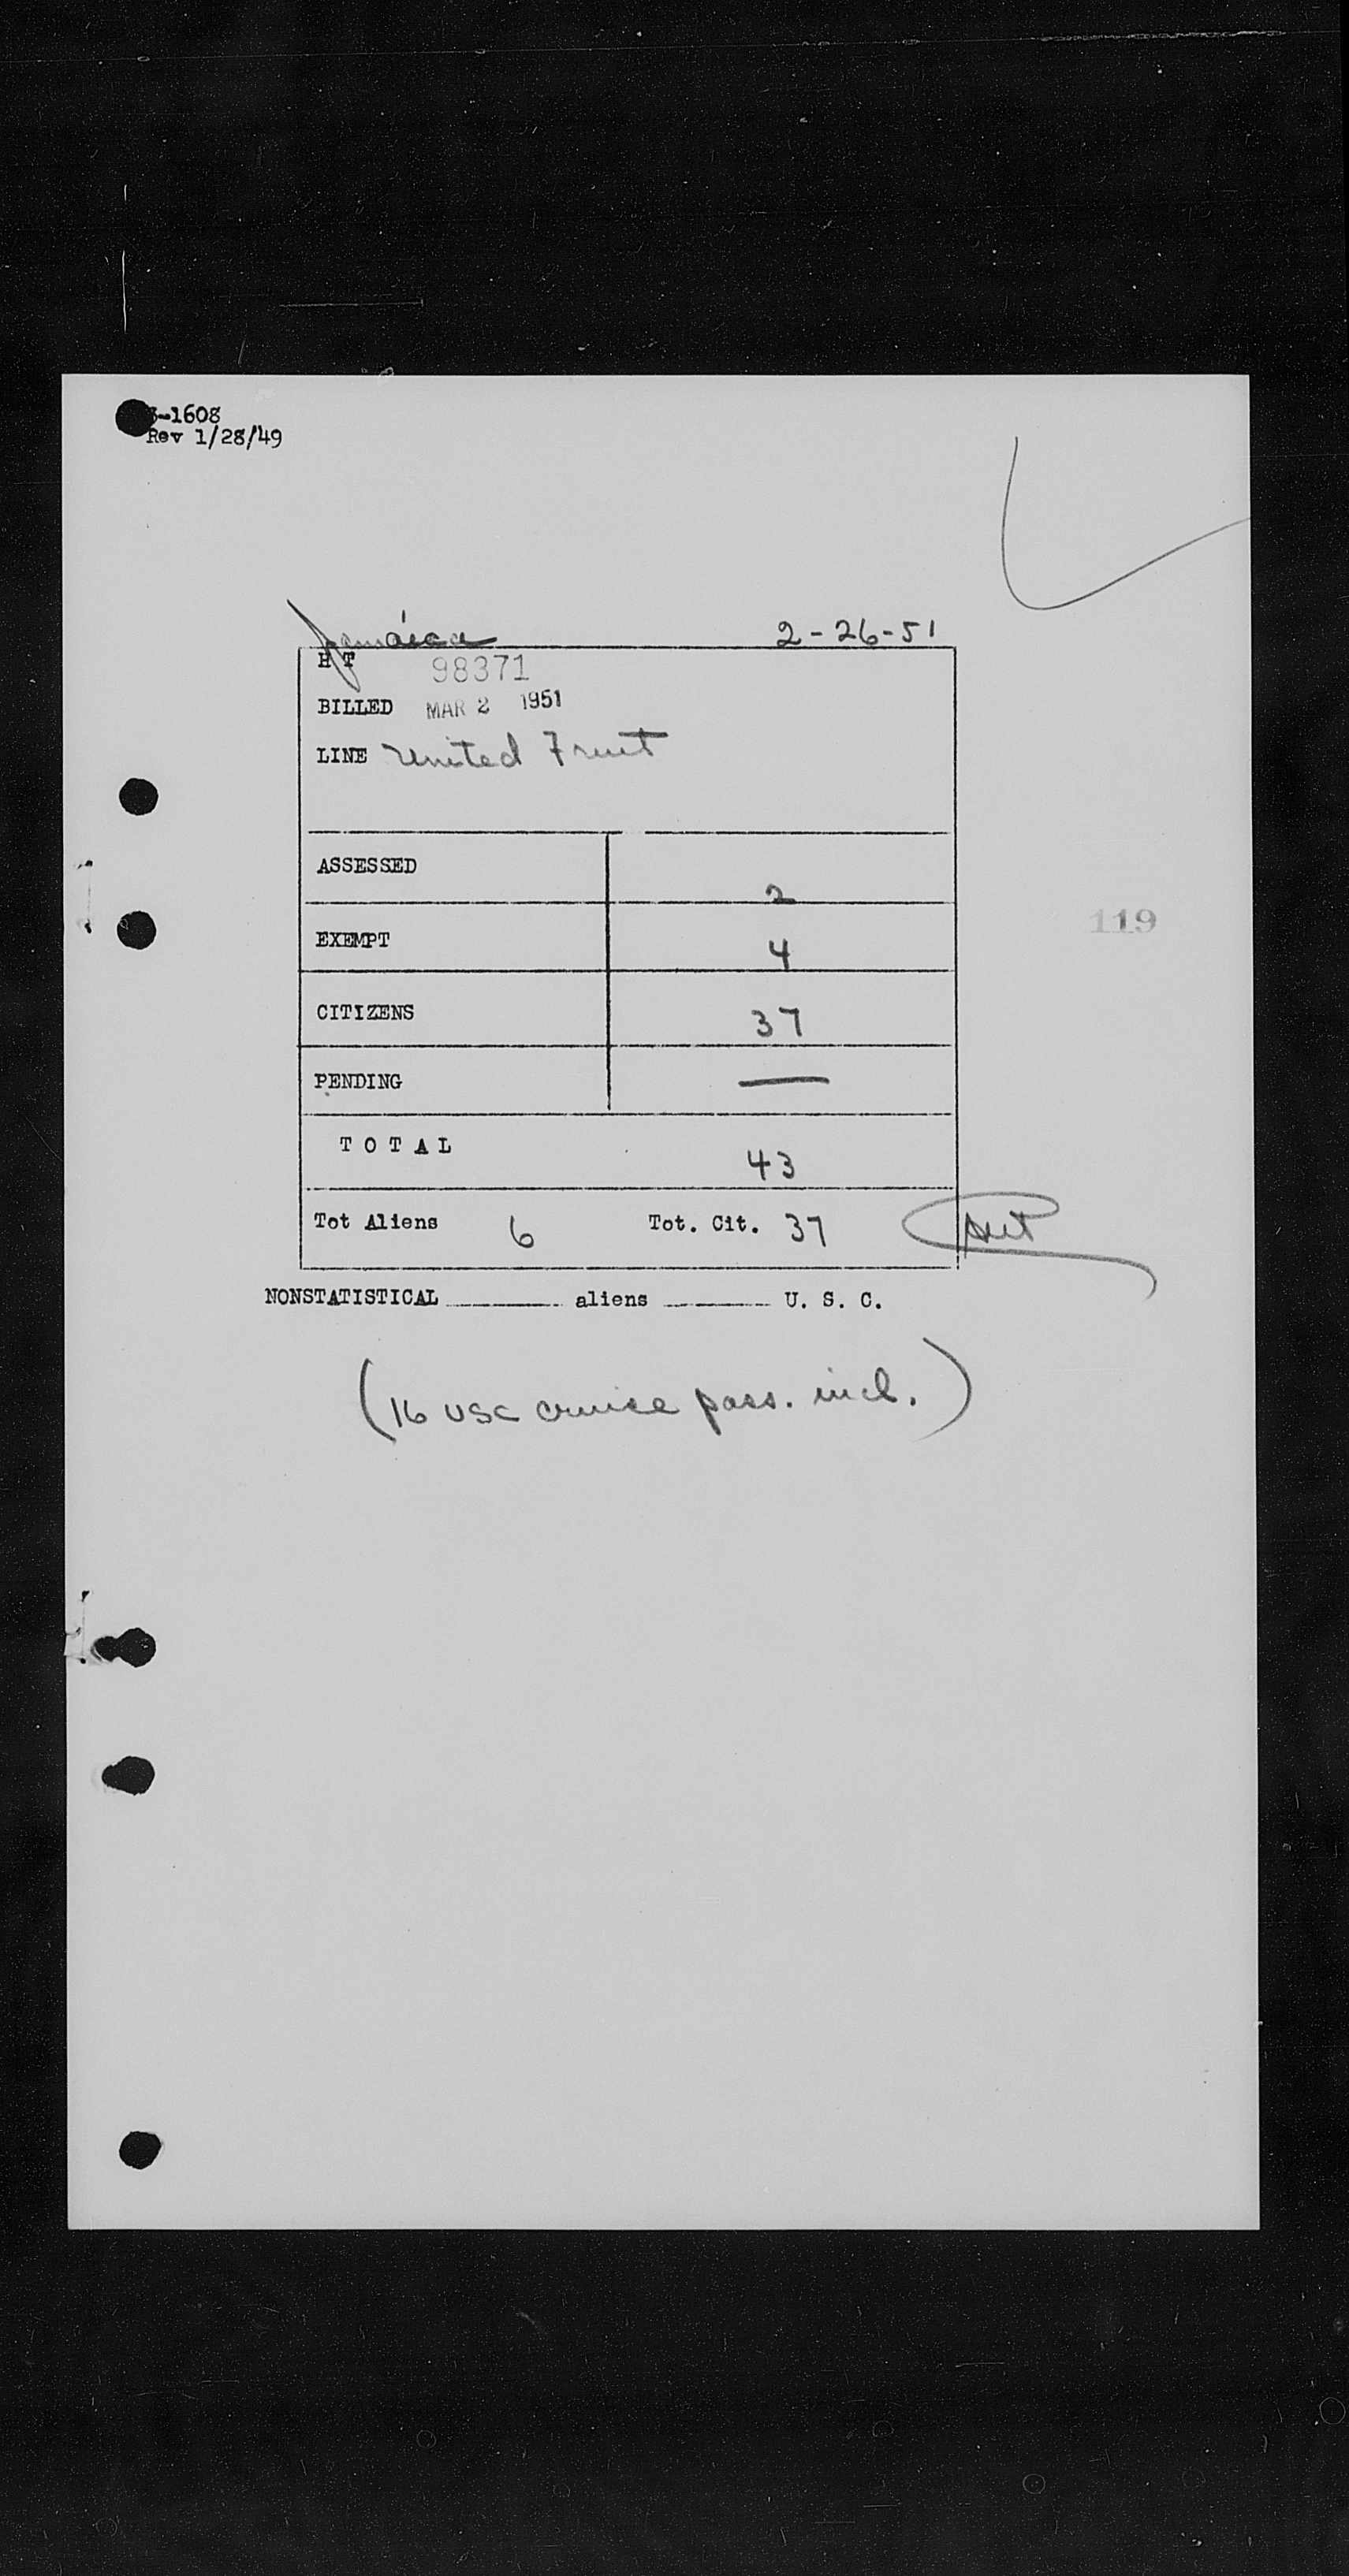 -1608
Rev 1/28/49
Jamaica 2-26-51
H T 98371
BILLED MAR 2 1951
LINE United Fruit
ASSESSED 2
119
EXEMPT 4
CITIZENS 37
PENDING —
T O T A L 43
Tot Aliens 6 Tot. Cit. 37
NONSTATISTICAL ________ aliens ________ U. S. C.
(16 USC cruise pass. incl.)